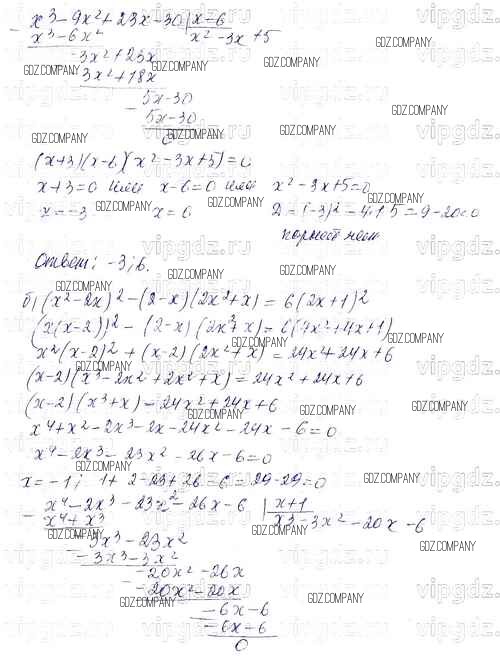 x³-9x²+23x-30 | x-6
x³-6x² x²-3x+5
-3x²+23x
3x²+18x
5x-30
5x-30
0
(x+3)(x-6)(x²-3x+5)=0
x+3=0 или x-6=0 или x²-3x+5=0
x=-3 x=6 D=(-3)²-4·1·5=9-20<0
корней нет
Ответ: -3; 6.
б) (x²-2x)²-(2-x)(2x²+x)=6(2x+1)²
(x(x-2))²-(2-x)(2x²+x)=6(4x²+4x+1)
x²(x-2)²+(x-2)(2x²+x)=24x²+24x+6
(x-2)(x³-2x²+2x²+x)=24x²+24x+6
(x-2)(x³+x)=24x²+24x+6
x⁴+x²-2x³-2x-24x²-24x-6=0
x⁴-2x³-23x²-26x-6=0
x=-1; 1+2-23+26-6=29-29=0
x⁴-2x³-23x²-26x-6 | x+1
x⁴+x³ x³-3x²-20x-6
-3x³-23x²
-3x³-3x²
-20x²-26x
-20x²-20x
-6x-6
-6x-6
0
GDZ.COMPANY
vipgdz.ru